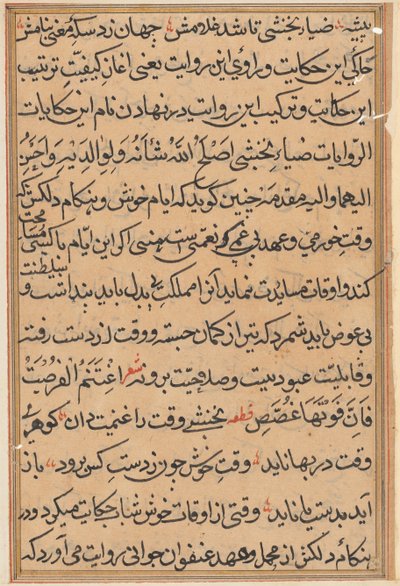 بیشه ضیاء نخشبی تا شد غلامش جهان زد سکه معنی نامش
حاکی این حکایت و راوی این روایت یعنی آغاز کیفیت ترتیب
این حکایت و ترکیب این روایت در نهادن نام این حکایات
الروایات ضیاء نخشبی اصلح الله شأنه ولوالدیه واحسن
الیهما والیه مقدمه چنین گوید که ایام خوش و هنکام دلکش که
وقت خورمی و عهد بی غمی نعمتی است هنی اکر این ایام با کسی
کند و اوقات مساعدت نماید آنرا مملکت بی بدل باید پنداشت و
بی عوض باید شمرد که تیر از کمان جسته و وقت از دست رفته
و قابلیت عود نیست و صلاحیت برو نه شعر اغتنم الفرصت
فان فوتها غصص قطعه نخشبی وقت را غنیمت دان کوهری
وقت در بها ناید وقت خوش چون ز دست کس برود باز
آید بدست یا ناید وقتی از اوقات خوش شبان حکایت میکرد و در
هنکام دلکش از مجمل و عهد عنفوان جوانی روایت می آورد که